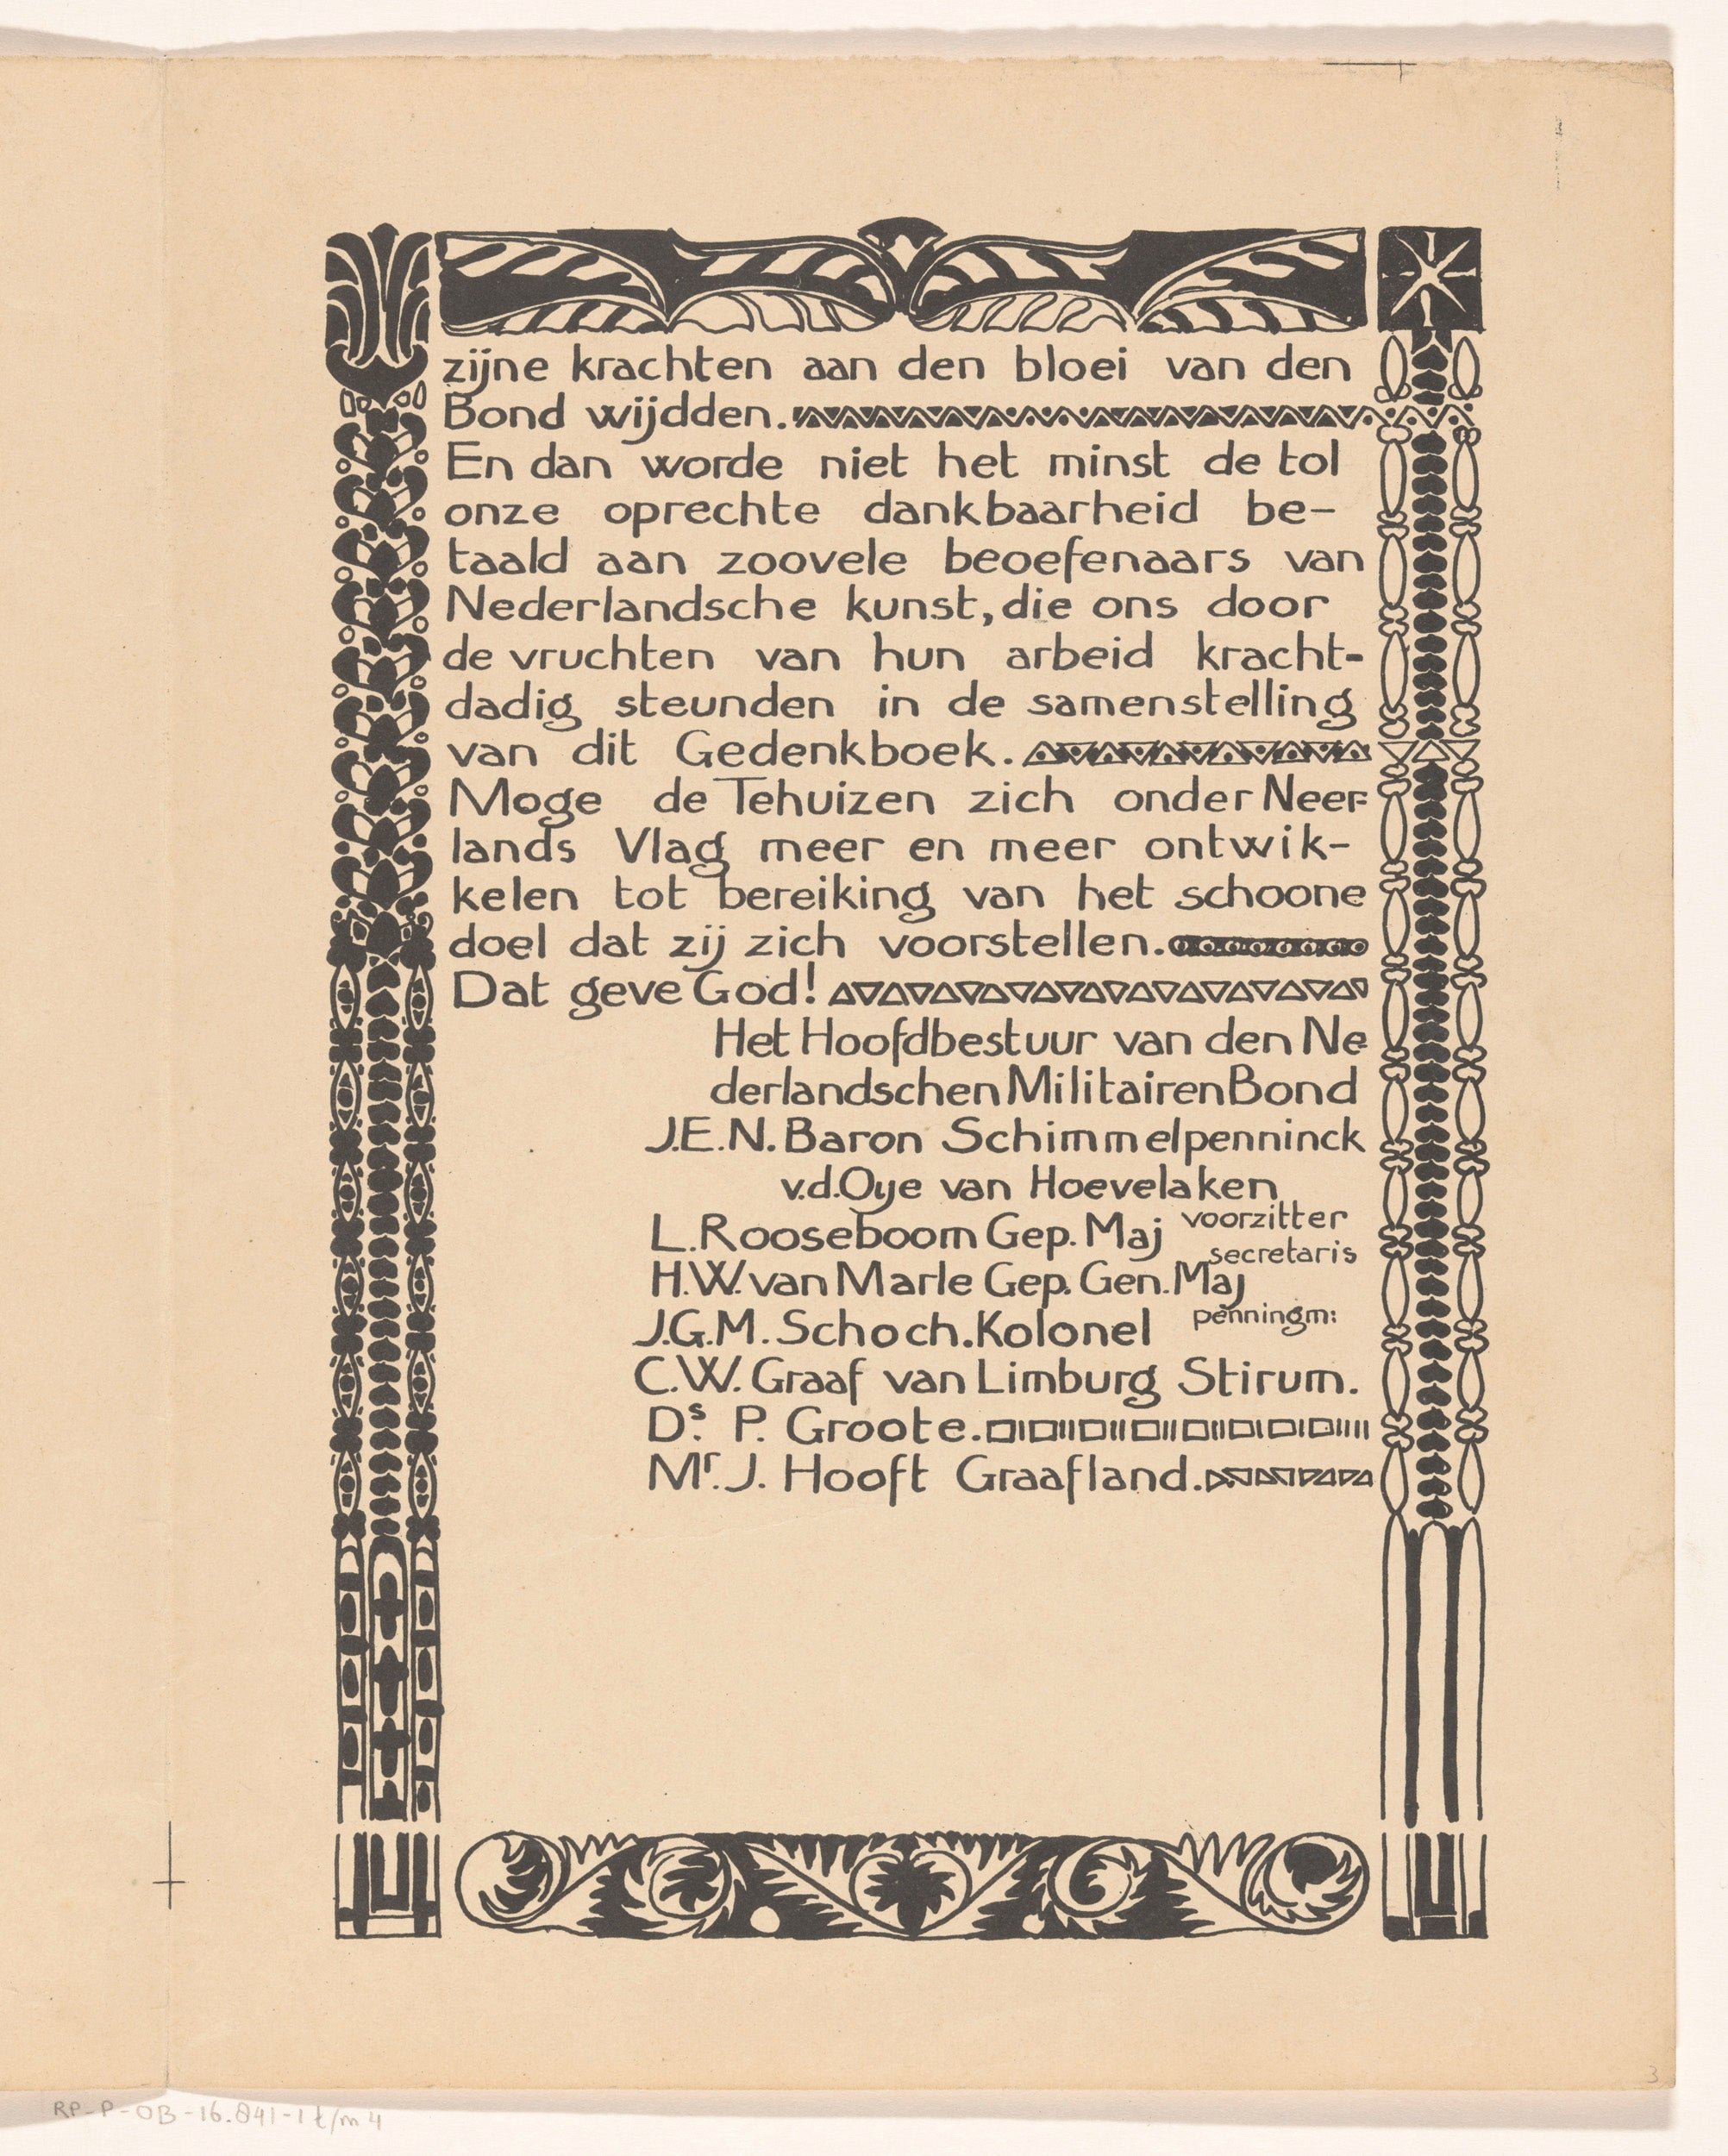 zijne krachten aan den bloei van den
Bond wijdden.
En dan worde niet het minst de tol
onze oprechte dankbaarheid be-
taald aan zoovele beoefenaars van
Nederlandsche kunst, die ons door
de vruchten van hun arbeid kracht-
dadig steunden in de samenstelling
van dit Gedenkboek.
Moge de Tehuizen zich onder Neer-
lands Vlag meer en meer ontwik-
kelen tot bereiking van het schoone
doel dat zij zich voorstellen.
Dat geve God!
Het Hoofdbestuur van den Ne-
derlandschen Militairen Bond
J.E.N. Baron Schimmelpenninck
v.d. Oye van Hoevelaken
voorzitter
L. Rooseboom Gep. Maj
secretaris
H.W. van Marle Gep. Gen. Maj
penningm:
J.G.M. Schoch. Kolonel
C.W. Graaf van Limburg Stirum.
Ds. P. Groote.
Mr. J. Hooft Graafland.
3
RP-P-OB-16.841-1 t/m 4